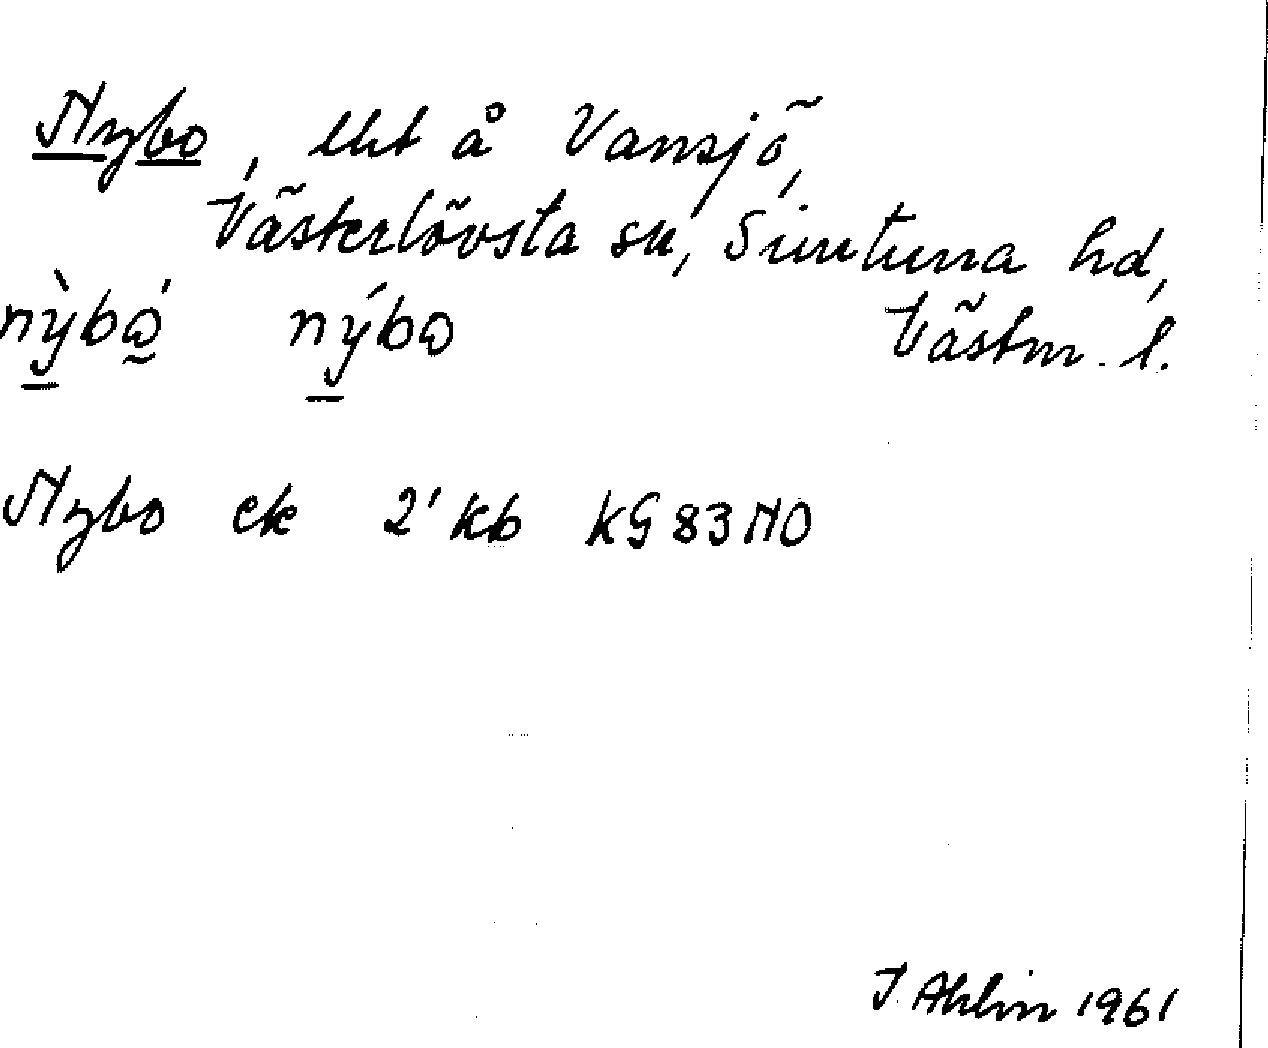 Nybo, lht å Vansjö,
Västerlövsta sn, Simtuna hd,
Västm. l.
nỳbώ̰ nýbω
Nybo ek 2' kb KG 83 NO
J. Ahlin 1961